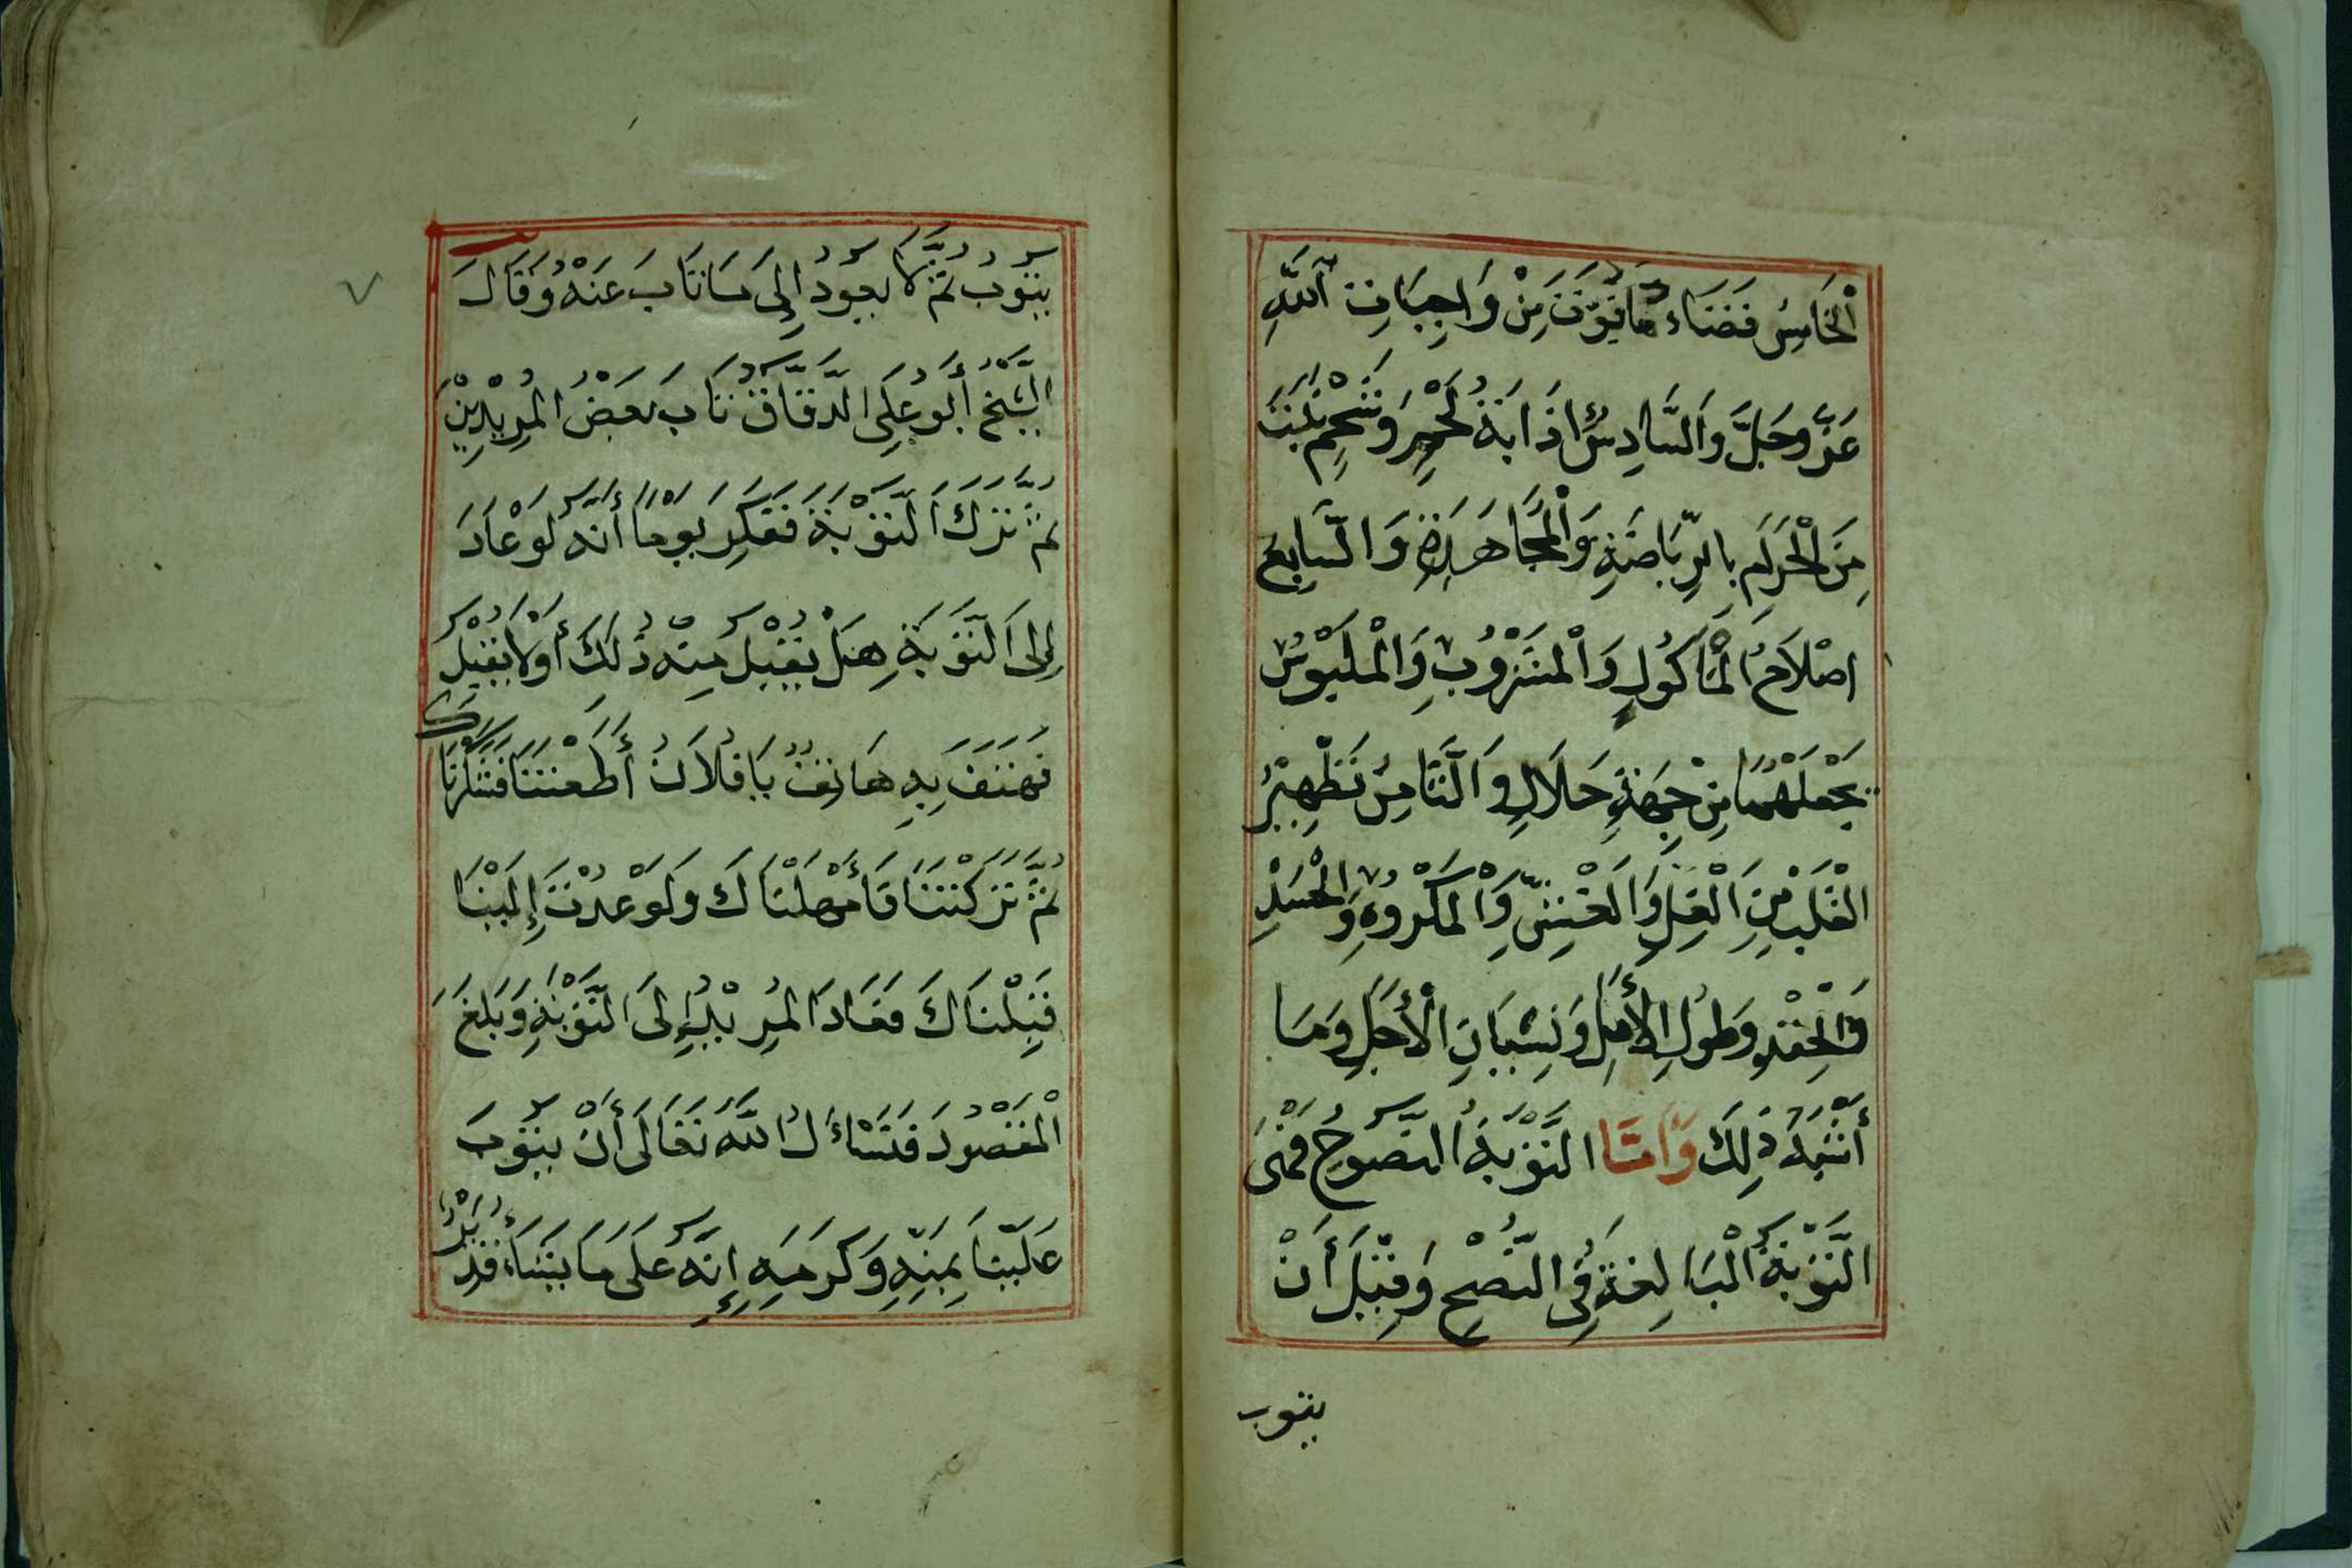 اَلْخَامِسُ قَضَاءُ مَا فَوَّتَ مِنْ وَاجِبَاتِ اللّٰهِ
عَزَّ وَجَلَّ وَالسَّادِسُ إِذَابَةُ لَحْمٍ وَشَحْمٍ نَبَتَ
مِنَ الْحَرَامِ بِالرِّيَاضَةِ وَالْمُجَاهَدَةِ وَالسَّابِعُ
اِصْلَاحُ الْمَأْكُولِ وَالْمَشْرُوبِ وَالْمَلْبُوسِ
يَجْعَلُهُمَا مِنْ جِهَةِ حَلَالٍ وَالثَّامِنُ تَطْهِيْرُ
الْقَلْبِ مِنَ الْغِلِّ وَالْغِشِّ وَالْمَكْرُوْهِ وَالْحَسَدِ
وَالْحِقْدِ وَطُولِ الْأَمَلِ وَنِسْيَانِ الْأَجَلِ وَمَا
أَشْبَهَ ذٰلِكَ وَاَمَّا التَّوْبَةُ النَّصُوحُ فَهْيَ
التَّوْبَةُ الْبَالِغَةُ فِي النُّصْحِ وَقِيْلَ أَنْ
يتوب
يَتُوبَ ثُمَّ لَا يَعُودُ إِلَى مَا تَابَ عَنْهُ وَقَالَ
الشَّيْخُ أَبُو عَلِيِّ الدَّقَّاقُ تَابَ بَعْضُ الْمُرِيْدِيْنَ
ثُمَّ تَرَكَ التَّوْبَةَ فَفَكَّرَ يَوْمًا أَنَّهُ لَوْ عَادَ
إِلَى التَّوْبَةِ هَلْ يُقْبَلُ مِنْهُ ذٰلِكَ أَوْ لَا يُقْبَلُ
فَهَتَفَ بِهِ هَاتِفٌ يَا فُلَانُ أَطَعْتَنَا فَشَكَرْنَاكَ
ثُمَّ تَرَكْتَنَا فَأَمْهَلْنَاكَ وَلَوْ عُدْتَ إِلَيْنَا
قَبِلْنَاكَ فَعَادَ الْمُرِيْدُ إِلَى التَّوْبَةِ وَبَلَغَ
الْمَقْصُودَ فَنَسْأَلُ اللّٰهَ تَعَالَى أَنْ يَتُوبَ
عَلَيْنَا بِمَنِّهِ وَكَرَمِهِ إِنَّهُ عَلَى مَا يَشَاءُ قَدِيْرٌ